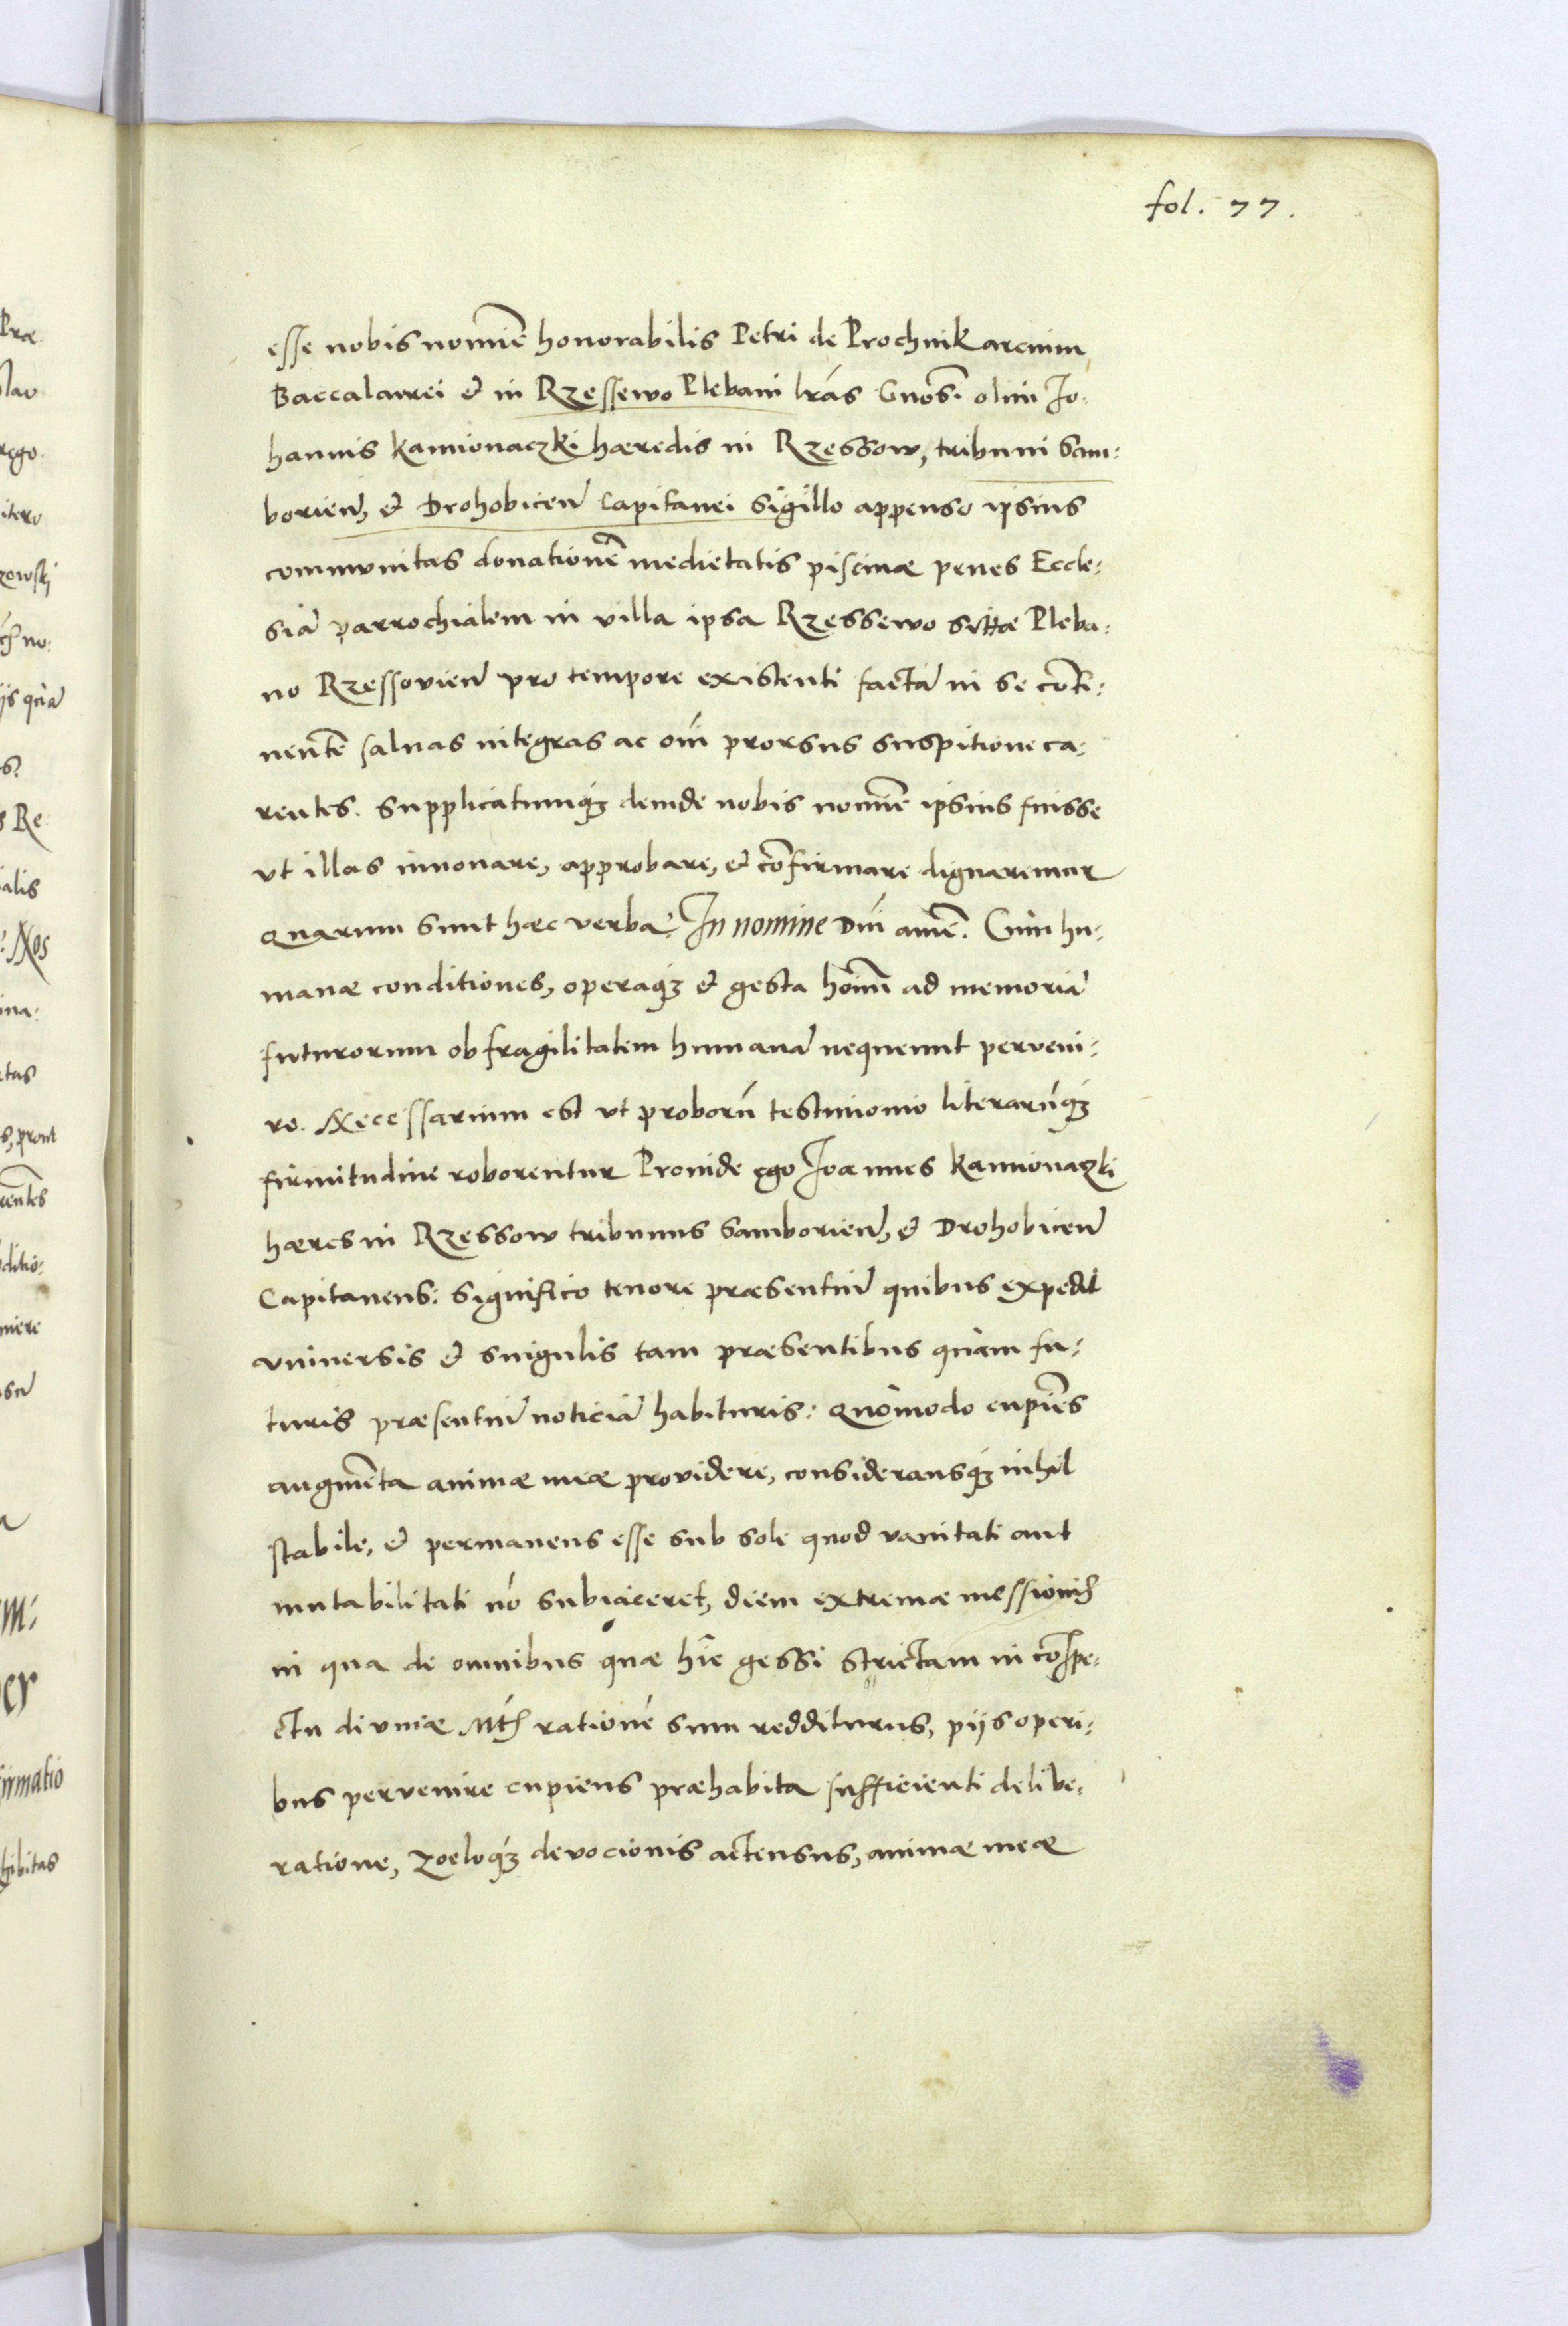 fol. 77.
esse nobis nomīe honorabilis Petri de Prochnik arcium
Baccalaurei et in Rzessewo Plebani lrás Gnosi olim Jo:
hannis Kamionaczki hæredis in Rzessow, tribuni Sam:
borieñ, et Drohobiceñ Capitanei Sigillo appenso ipsius
communitas donationē medietatis piscinæ penes Eccle:
siā parrochialem in villa ipsa Rzessewo sittæ Pleba:
no Rzessovieñ pro tempore existenti factā in se conti:
nentē salvas integras ac oni prorsus suspitione ca:
rentes. Supplicatumq3 deinde nobis nomīe ipsius fuisse
ut illas innovare, approbare, et cōfirmare dignaremur
quarum sunt hæc verba: In nomine Dni amē. Cum hu:
manæ conditiones, operaq3 et gesta hoīm ad memoriā
futurorum ob fragilitatem humanā nequeunt perveni:
re. Necessarium est ut proborū testimonio literarūq3
firmitudine roborentur Proinde ego Joannes Kamionaczki
hæres in Rzessow tribunus Samborieñ, et Drohobiceñ
Capitaneus: Significo tenore præsentiū quibus expedit
universis et singulis tam præsentibus quàm fu:
turis præsentiū noticiā habituris: quomodo cupiēs
augmēta animæ meæ providere, consideransq3 nihil
stabile, et permanens esse sub sole quod vanitati aut
mutabilitati nō subiaceret, diem extremæ messionis
in qua de omnibus quæ hîc gessi strictam in cōspe:
ctu divinæ Mts rationē sum redditurus, piis operi:
bus pervenire cupiens præhabita sufficienti delibe:
ratione, Zoeloq3 devocionis actensus, animæ meæ